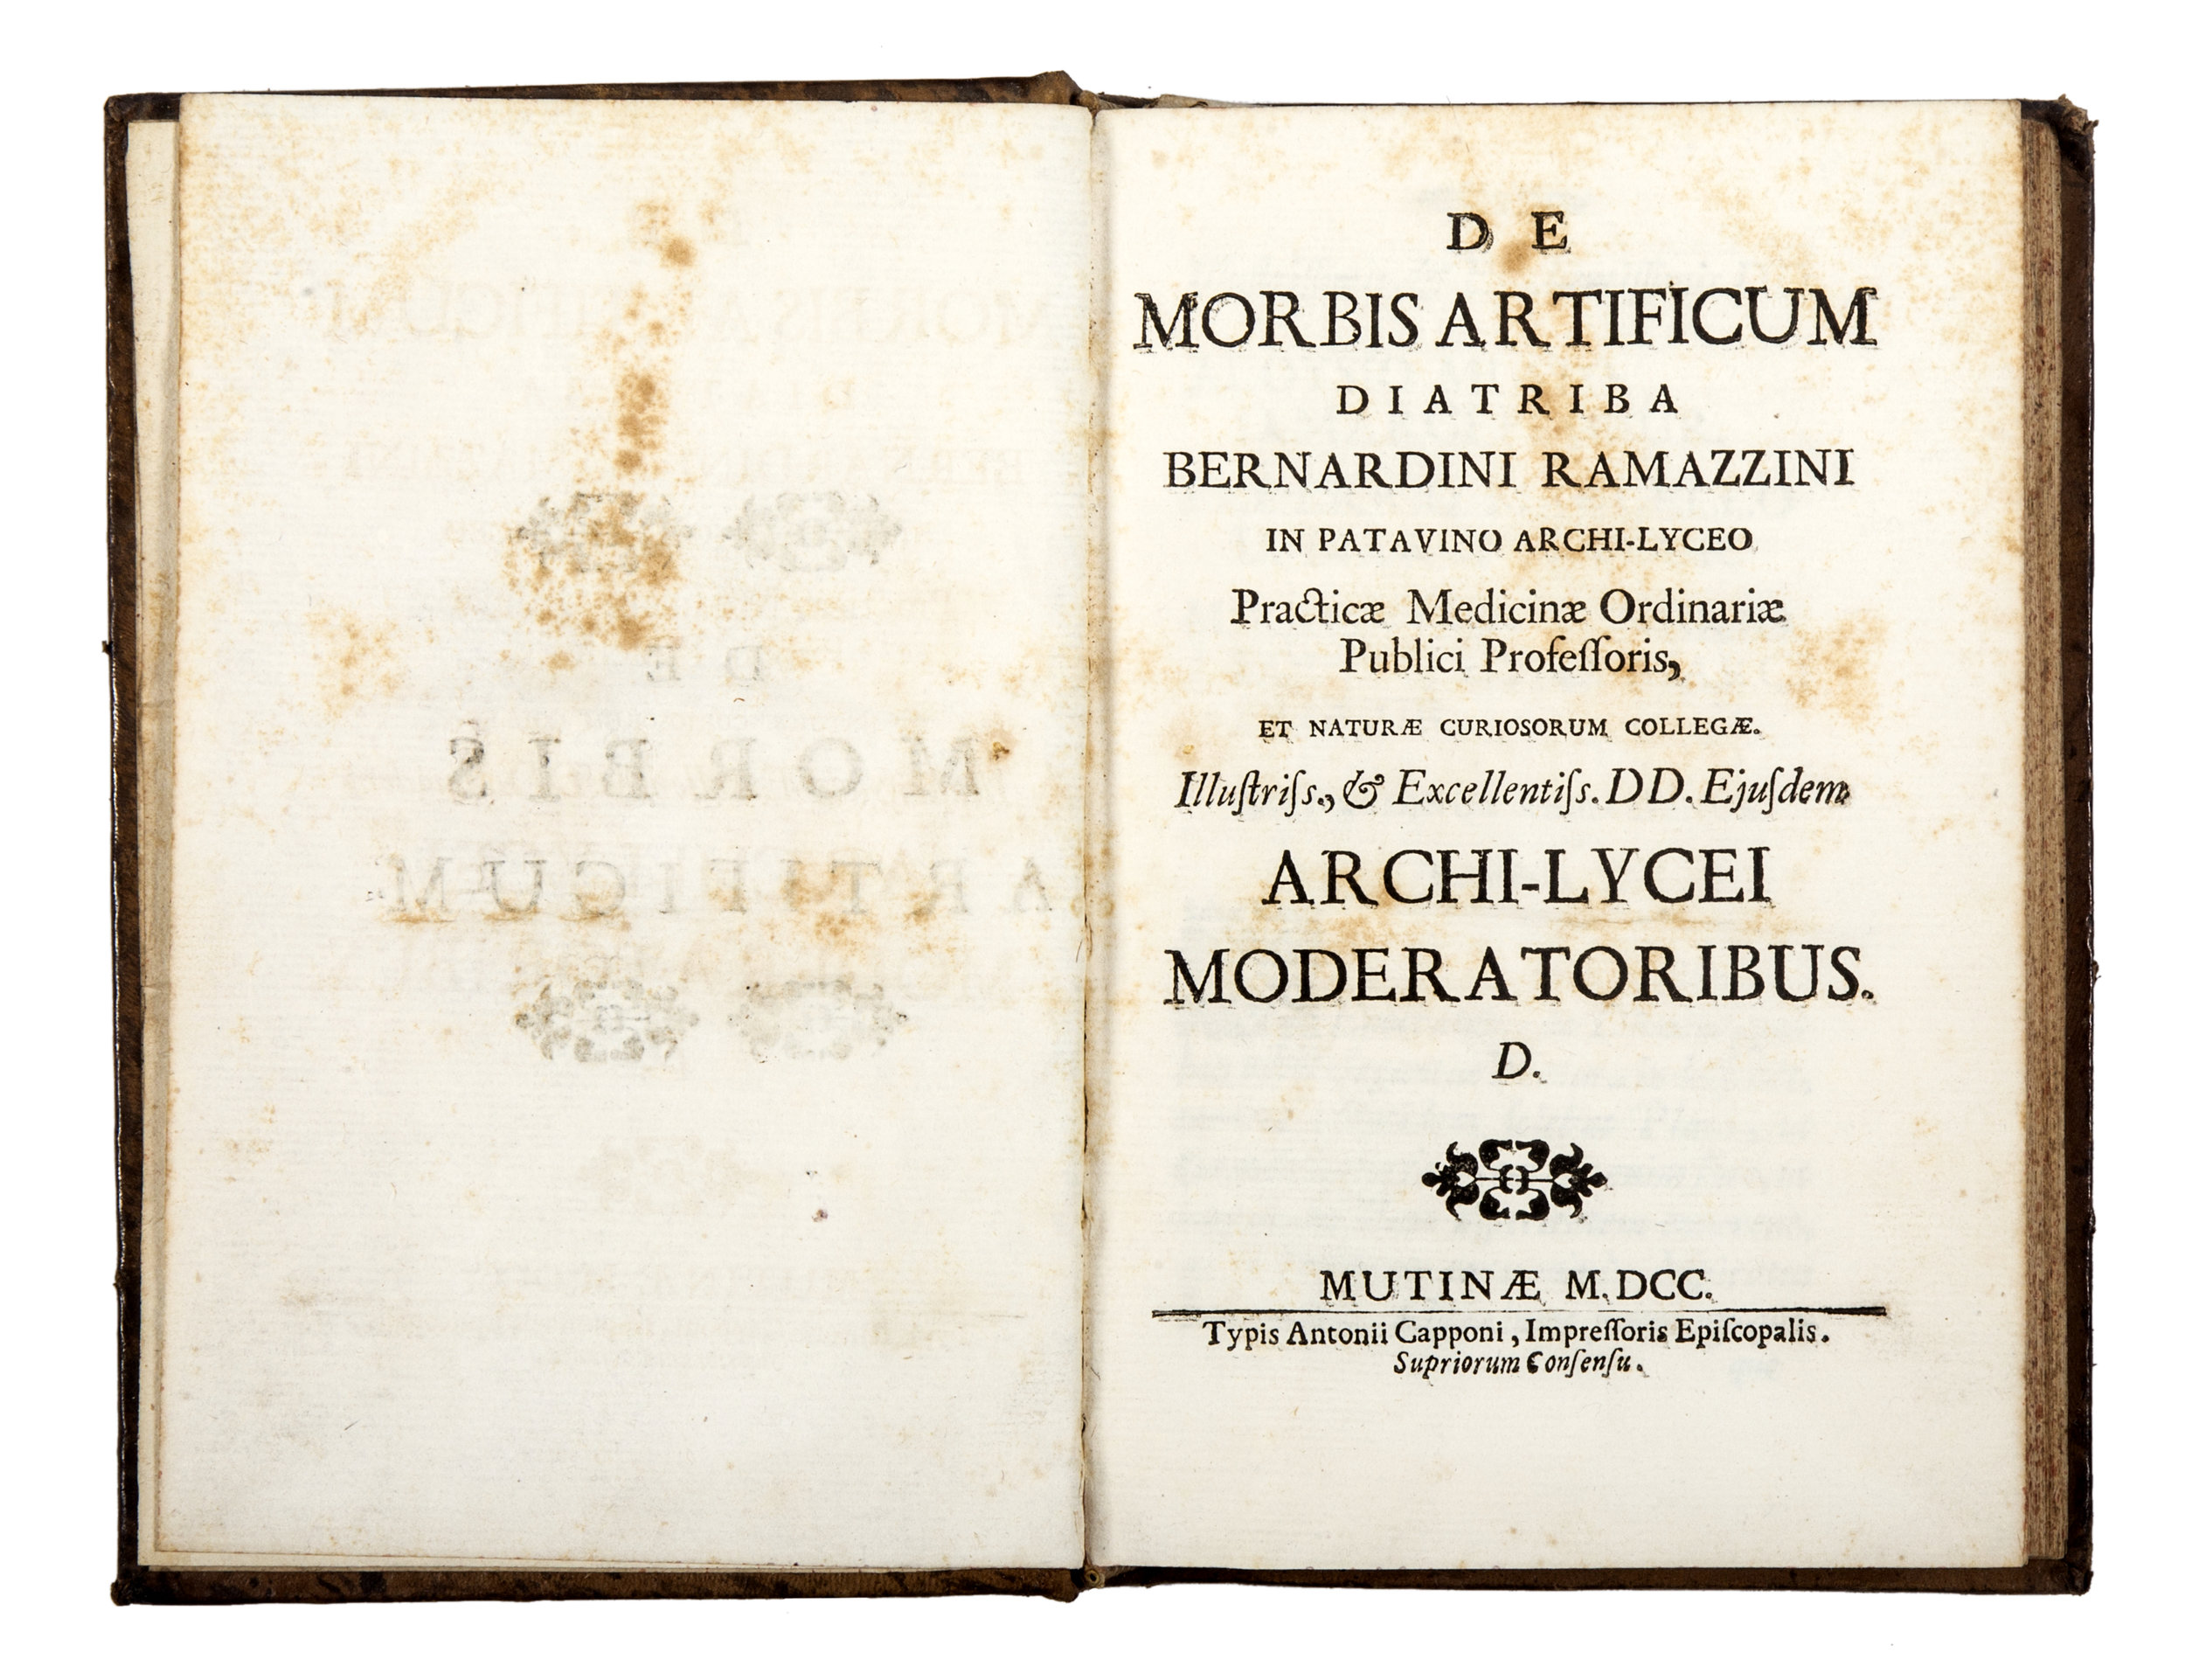 DE
MORBIS
ARTIFICUM
DE
MORBIS ARTIFICUM
DIATRIBA
BERNARDINI RAMAZZINI
IN PATAVINO ARCHI-LYCEO
Practicæ Medicinæ Ordinariæ
Publici Profeſſoris,
ET NATURÆ CURIOSORUM COLLEGÆ.
Illuſtriſs., & Excellentiſs. DD. Ejuſdem
ARCHI-LYCEI
MODERATORIBUS.
D.
MUTINÆ M.DCC.
Typis Antonii Capponi, Impreſſoris Epiſcopalis.
Supriorum Conſenſu.